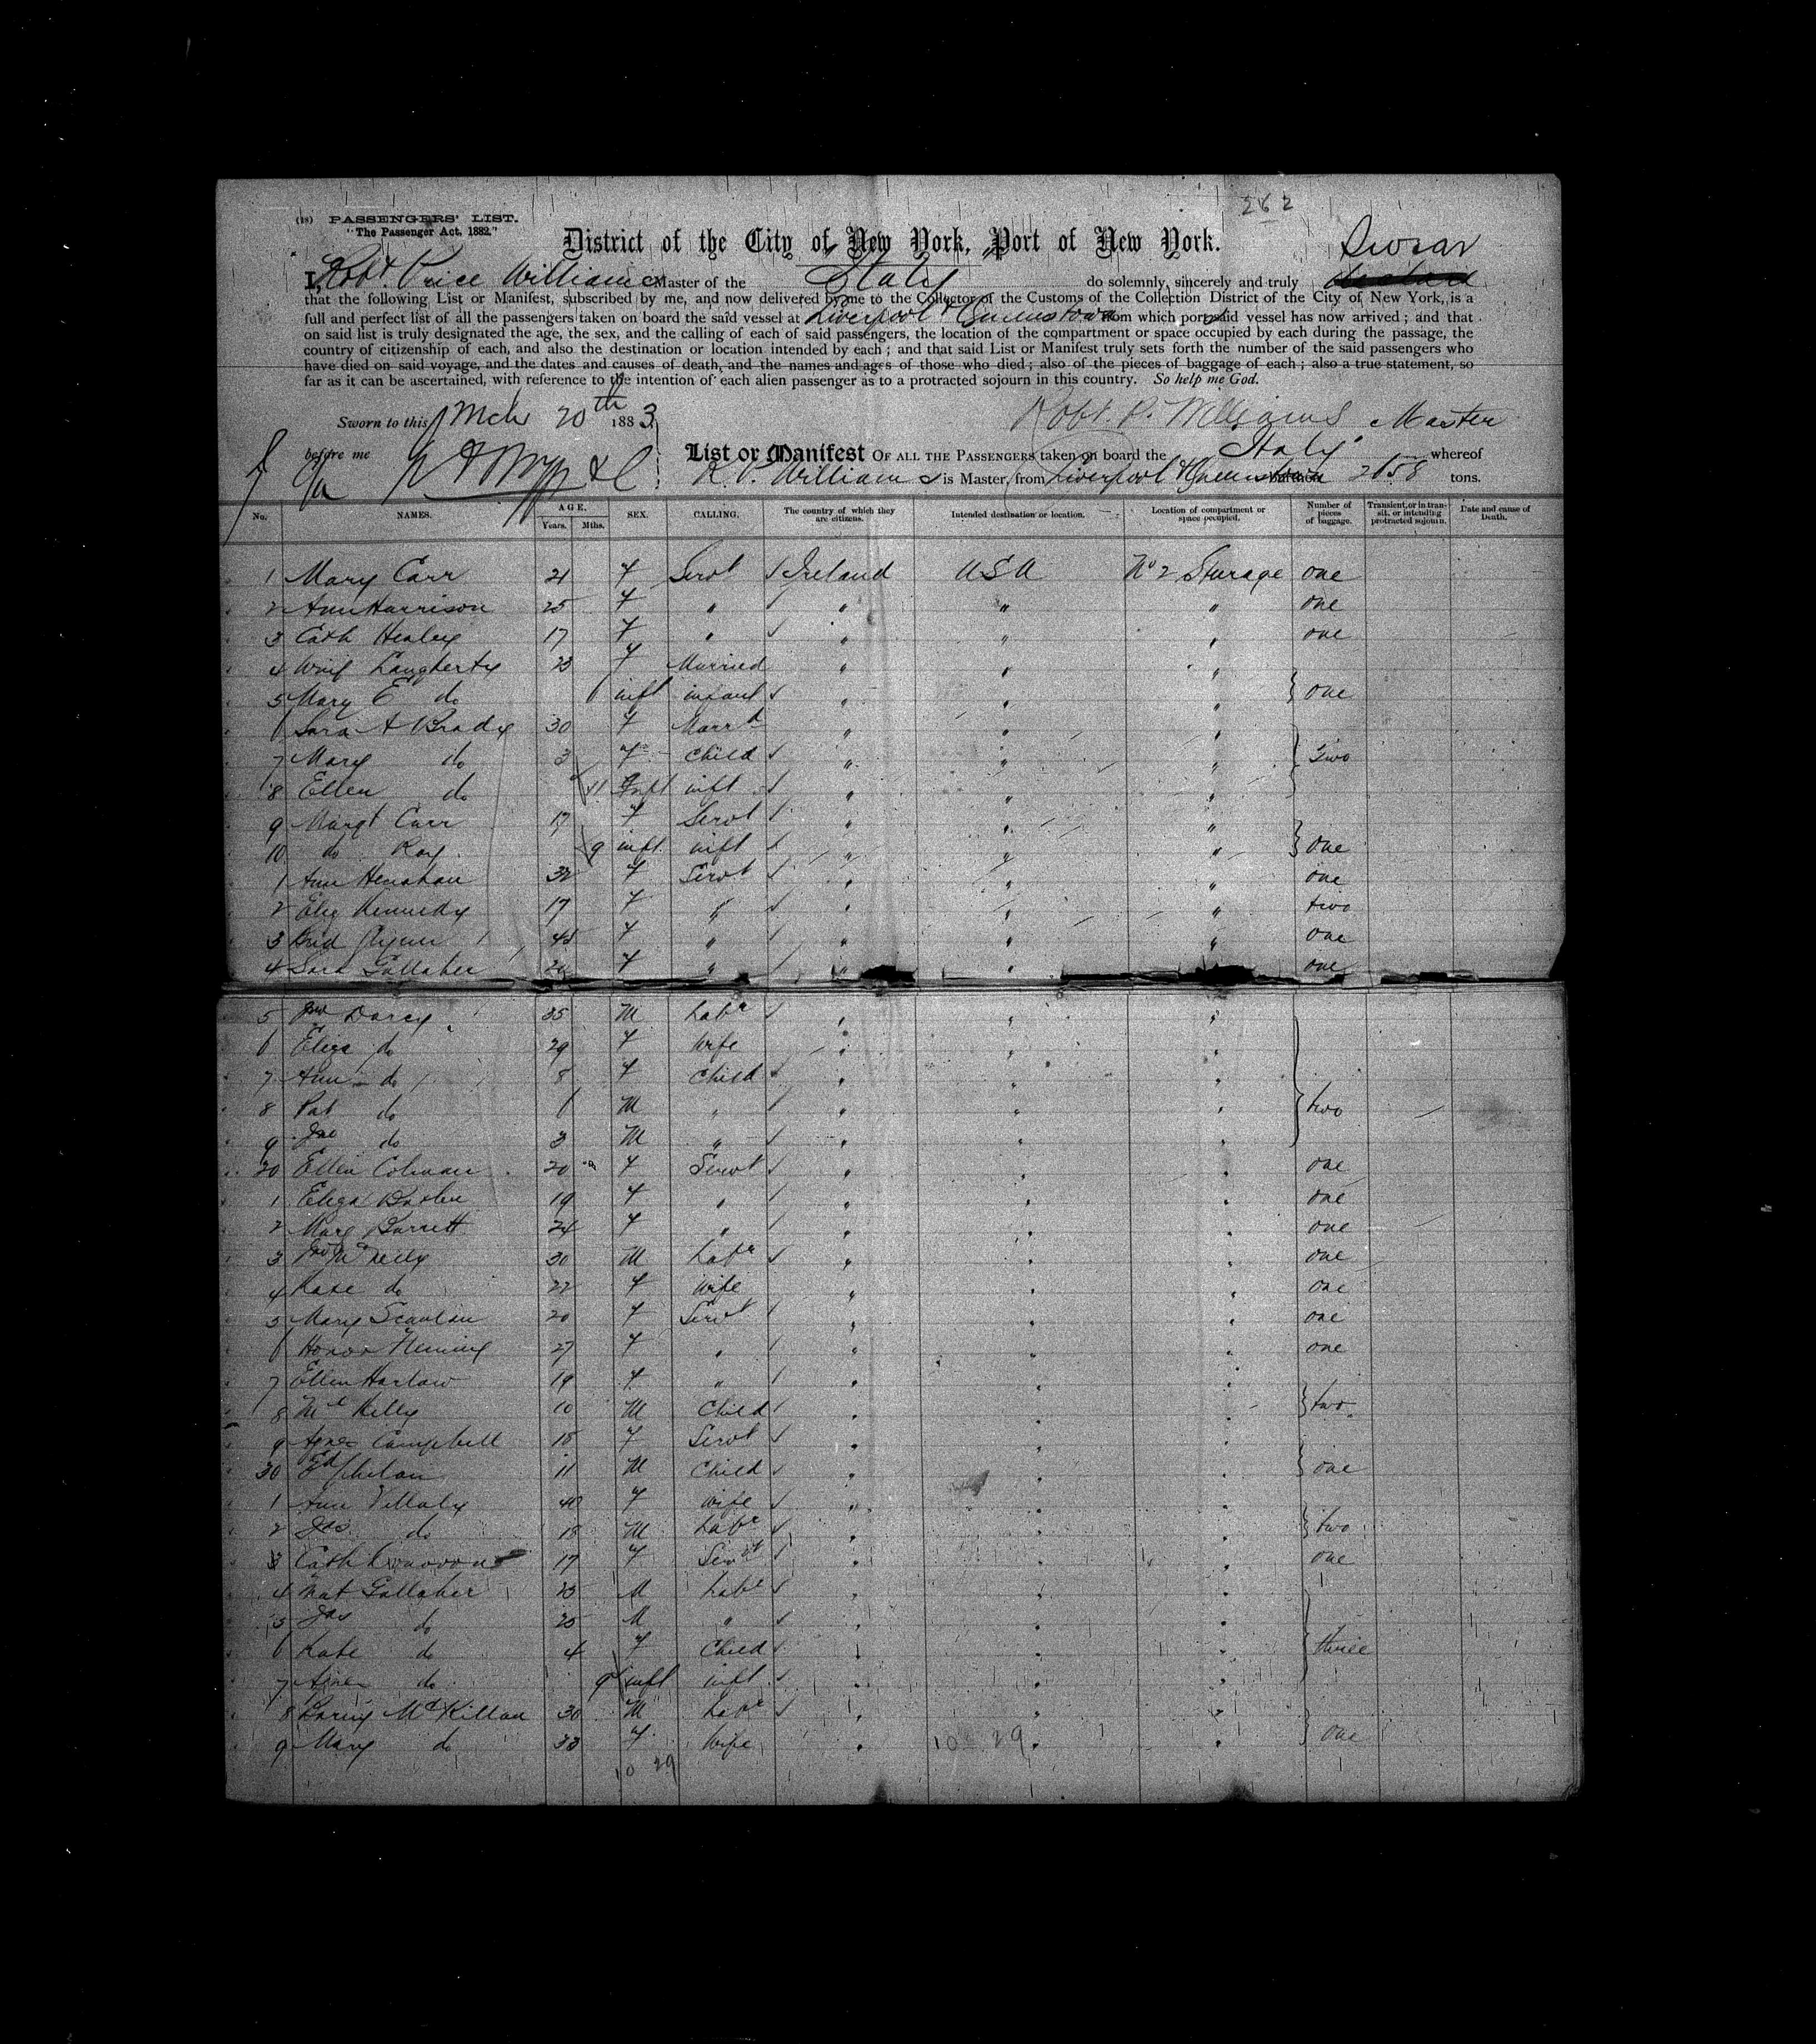 262
(18) PASSENGERS' LIST.
"The Passenger Act, 1882."
District of the City of New York, Port of New York.
Swear
I, Robt. Price Williams Master of the Italy do solemnly, sincerely and truly
that the following List or Manifest, subscribed by me, and now delivered by me to the Collector of the Customs of the Collection District of the City of New York, is a
full and perfect list of all the passengers taken on board the said vessel at Liverpool & Queenstown from which port said vessel has now arrived; and that
on said list is truly designated the age, the sex, and the calling of each of said passengers, the location of the compartment or space occupied by each during the passage, the
country of citizenship of each, and also the destination or location intended by each; and that said List or Manifest truly sets forth the number of the said passengers who
have died on said voyage, and the dates and causes of death, and the names and ages of those who died; also of the pieces of baggage of each; also a true statement, so
far as it can be ascertained, with reference to the intention of each alien passenger as to a protracted sojourn in this country. So help me God.
Sworn to this Mch 20th 1883 Robt. P. Williams Master
before me List or Manifest OF ALL THE PASSENGERS taken on board the Italy whereof
R. P. Williams is Master, from Liverpool & Queenstown burthen tons.
No. NAMES. AGE. Years. Mths. SEX. CALLING. The country of which they are citizens. Intended destination or location. Location of compartment or space occupied. Number of pieces of baggage. Transient, or in transit, or intending protracted sojourn. Date and cause of Death.
1 Mary Carr 21 F Servt Ireland USA No 2 Sturage one
2 Ann Harrison 25 F " " " " one
3 Cath Healey 17 F " " " " one
4 Winif Laugherty 23 F Married " " "
5 Mary E do 6 inft infant " " " one
6 Sara A Brady 30 F Marrd " " "
7 Mary do 3 F Child " " " Two
8 Ellen do 11 inft inft " " "
9 Margt Carr 17 F Servt " " "
10 do Ray 9 inft inft " " " one
1 Ann Henahan 32 F Servt " " " one
2 Eliz Kennedy 17 F " " " " two
3 Brid 45 F " " " " one
4 Sara Gallaher 20 F " " " " one
5 Jno Darcy 35 M Labr " " "
6 Eliza do 29 F Wife " " "
7 Ann do 8 F Child " " "
8 Pat do 6 M " " " " two
9 Jas do 3 M " " " "
20 Ellen Colman 20 F Servt " " " one
1 Eliza 19 F " " " " one
2 Mary Barrett 24 F " " " " one
3 30 M Labr " " " one
4 Kate do 22 F Wife " " " one
5 Mary Scanlan 20 F Servt " " " one
6 Honor Fleming 27 F " " " " one
7 Ellen Harlow 19 F " " " "
8 Ml Kelly 10 M Child " " " two
9 Agnes Campbell 18 F Servt " " "
30 Ed Phelan 11 M Child " " " one
1 Ann 40 F Wife " " "
2 Jas do 18 M Labr " " " two
3 Cath Conovon 17 F Servt " " " one
4 Mat Gallaher 25 M Labr " " "
5 Jas do 25 M " " " "
6 Kate do 4 F Child " " " three
7 Agnes do 9 inft inft " " "
8 McKillan 30 M Labr " " "
9 Mary do 33 F Wife " 10 29 " " one
10 29